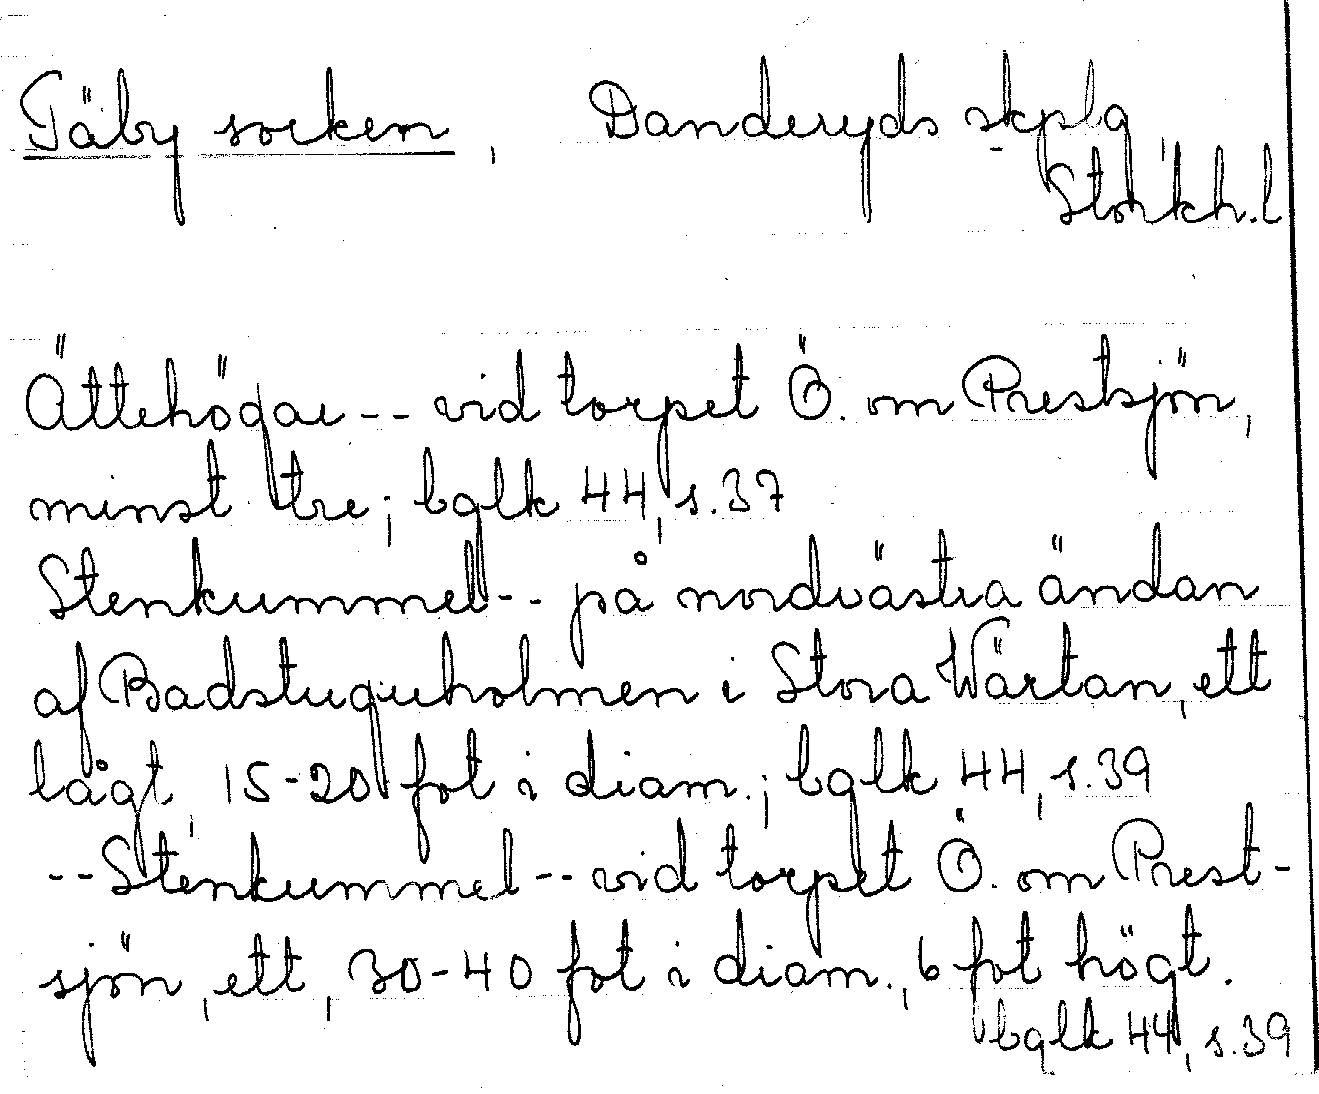 Täby socken, Danderyds skplg,
Stockh.l
Ättehögar -- vid torpet Ö. om Prestsjön,
minst tre; bglk 44, s.37
Stenkummel -- på nordvästra ändan
af Badstuguholmen i Stora Wärtan, ett
lågt, 15-20 fot i diam.; bglk 44, s.39
--Stenkummel -- vid torpet Ö. om Prest-
sjön, ett, 30-40 fot i diam., 6 fot högt.
bglk 44, s.39